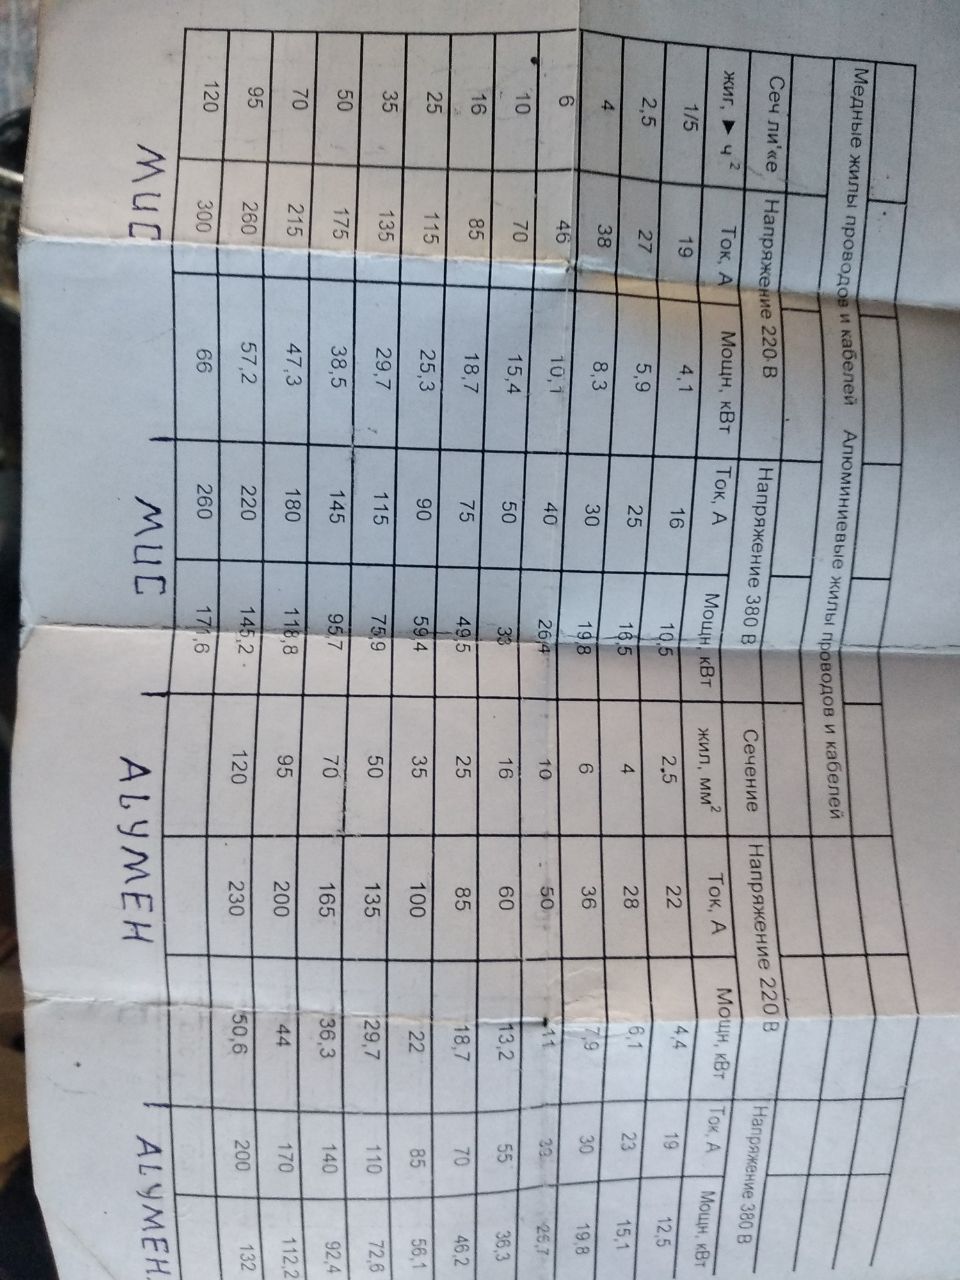 Медные жилы проводов и кабелей Алюминиевые жилы проводов и кабелей
Сеч ли'«е Напряжение 220 В Напряжение 380 В Сечение Напряжение 220 В Напряжение 380 В
жиг, ► ч² Ток, А Мощн, кВт Ток, А Мощн, кВт жил, мм² Ток, А Мощн, кВт Ток, А Мощн, кВт
1/5 19 4,1 16 10,5 2.5 22 4,4 19 12,5
2,5 27 5,9 25 16,5 4 28 6,1 23 15,1
4 38 8,3 30 19,8 6 36 7,9 30 19,8
6 46 10,1 40 26,4 10 50 11 39 25,7
10 70 15,4 50 33 16 60 13,2 55 36,3
16 85 18,7 75 49,5 25 85 18,7 70 46,2
25 115 25,3 90 59,4 35 100 22 85 56,1
35 135 29,7 115 75,9 50 135 29,7 110 72,6
50 175 38,5 145 95,7 70 165 36,3 140 92,4
70 215 47,3 180 118,8 95 200 44 170 112,2
95 260 57,2 220 145,2 120 230 50,6 200 132
120 300 66 260 171,6
МИС МИС ALYMEH ALYMEH.